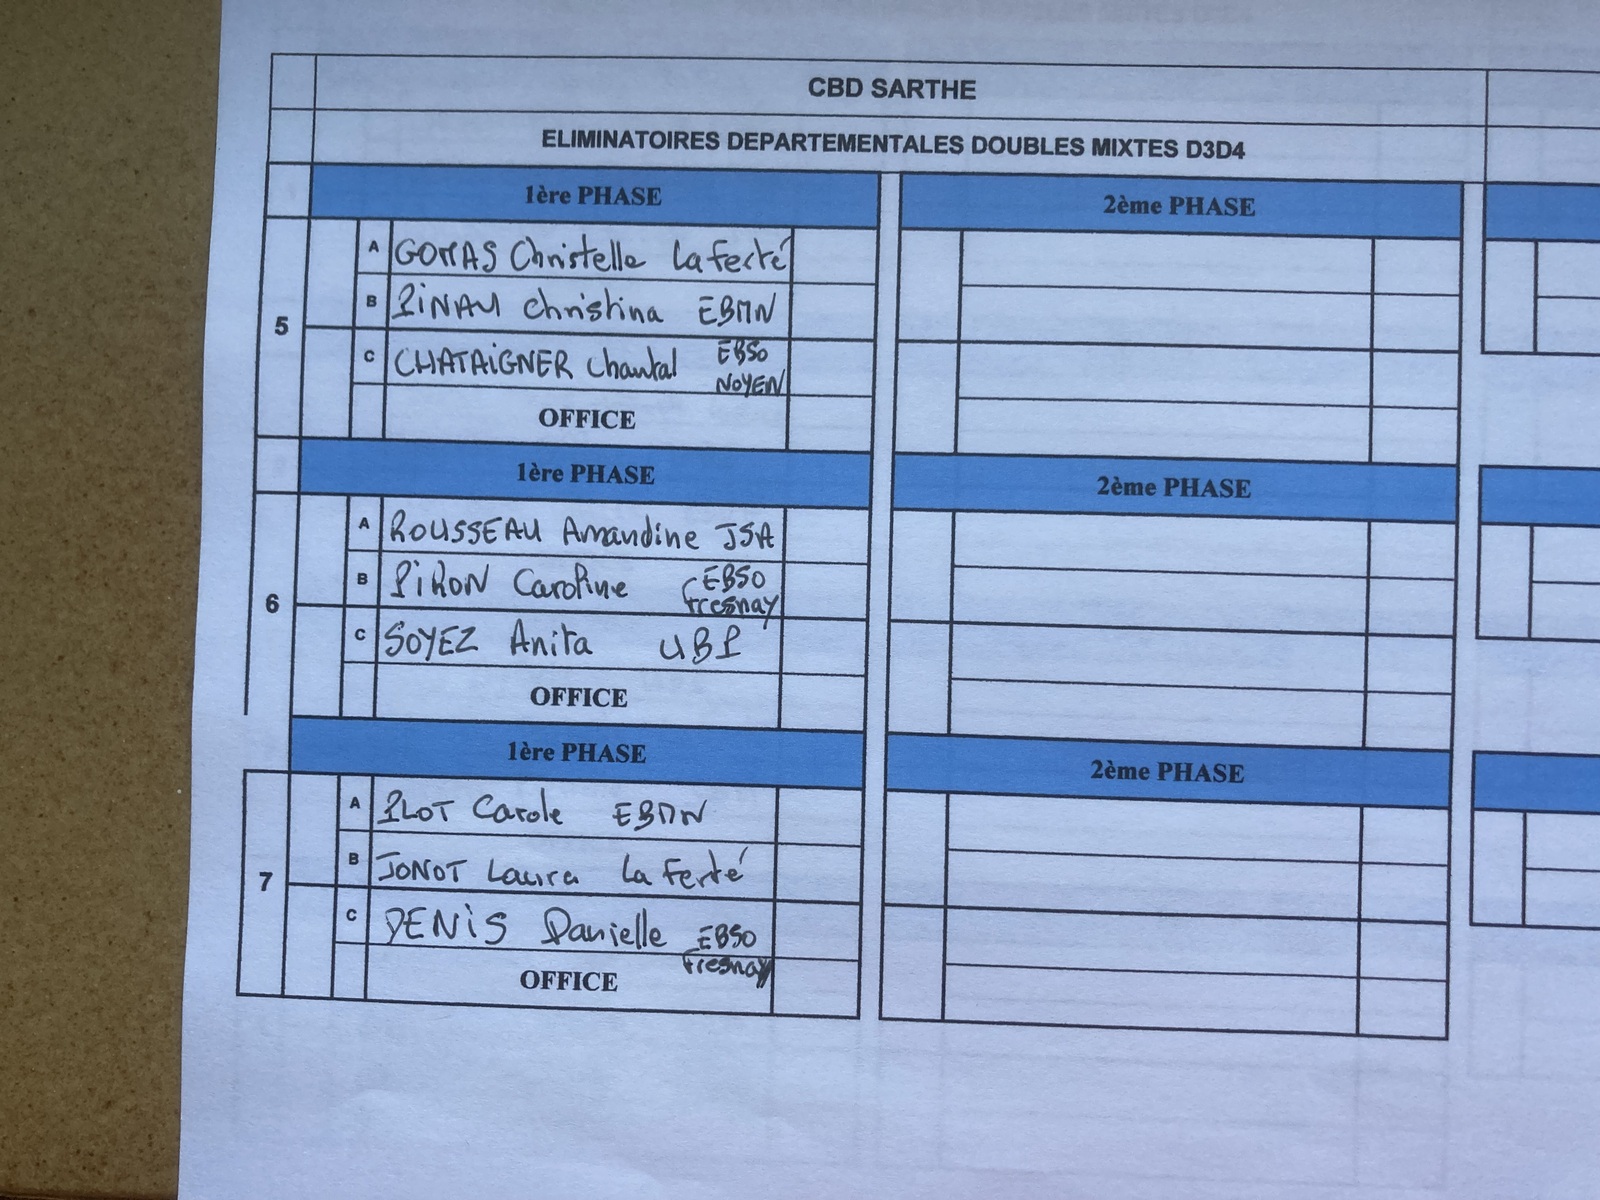 CBD SARTHE
ELIMINATOIRES DEPARTEMENTALES DOUBLES MIXTES D3D4
1ère PHASE
2ème PHASE
5
A GOMAS Christelle La Ferté
B PINAU Christina EBMN
C CHATAIGNER Chantal EBSO
NOYEN
OFFICE
1ère PHASE
2ème PHASE
6
A ROUSSEAU Amandine JSA
B PIRON Caroline EBSO
Fresnay
C SOYEZ Anita UBP
OFFICE
1ère PHASE
2ème PHASE
7
A PLOT Carole EBMN
B JONOT Laura La Ferté
C DENIS Danielle EBSO
Fresnay
OFFICE